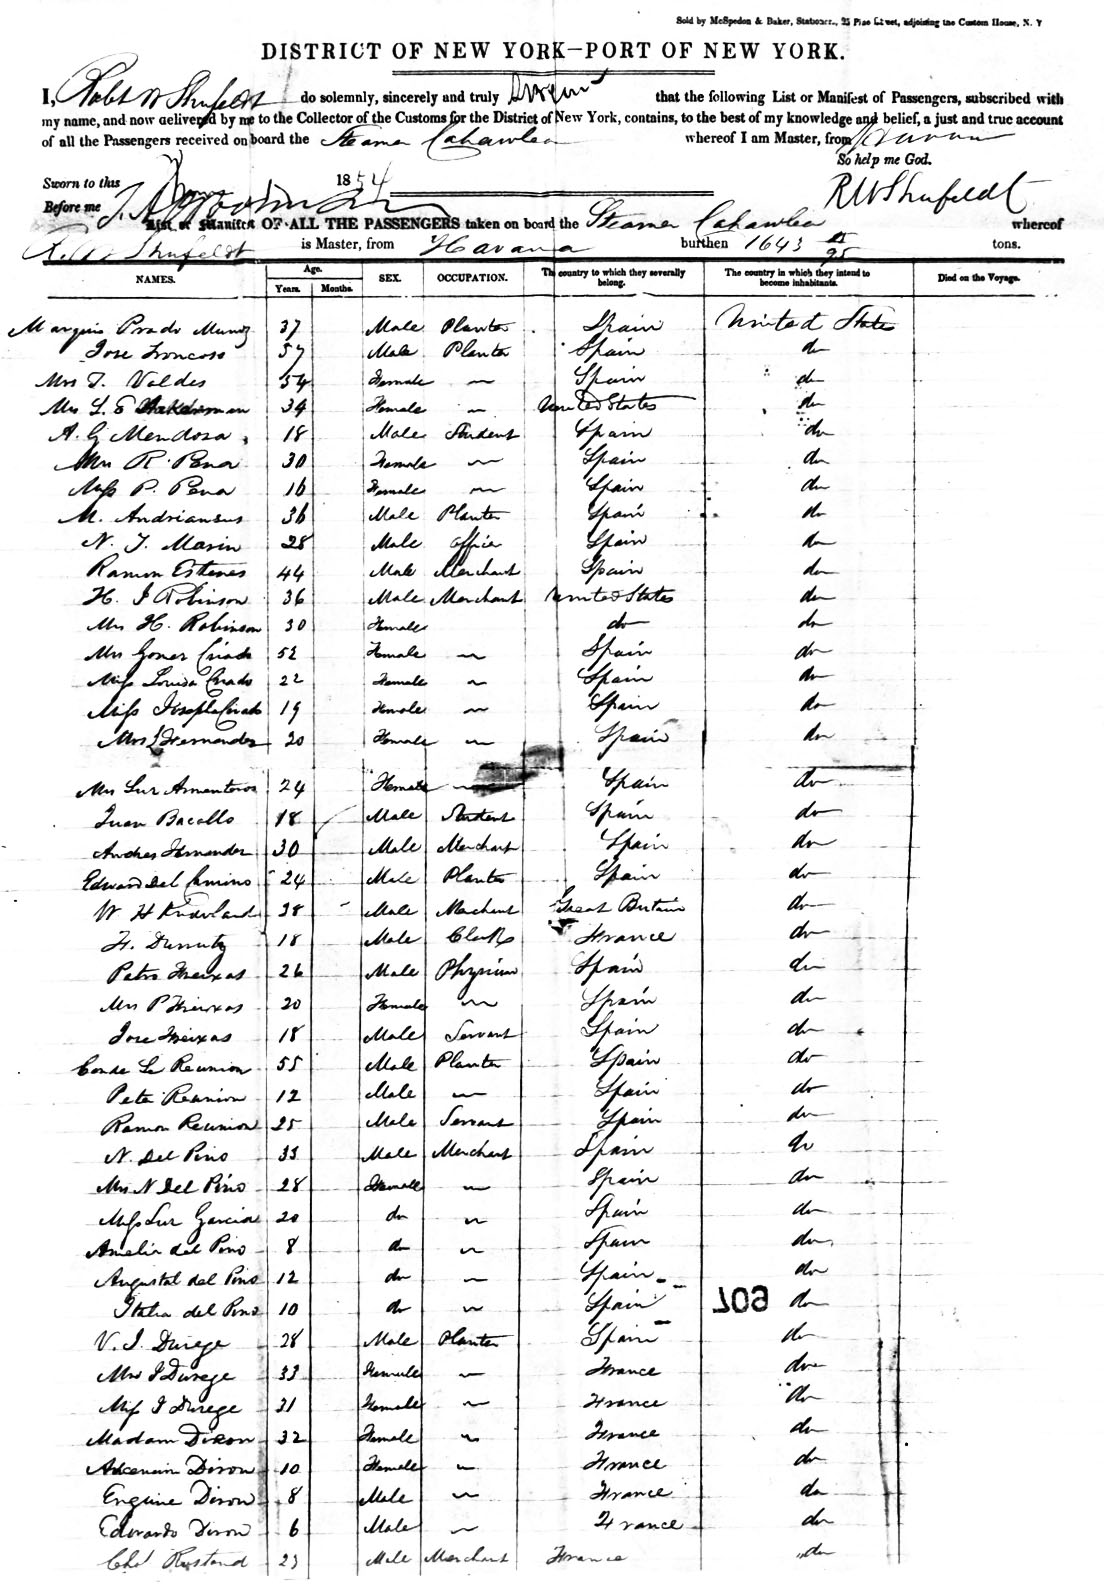 Sold by McSpedon & Baker, Stationers, 25 Pine Street, adjoining the Custom House, N. Y
DISTRICT OF NEW YORK—PORT OF NEW YORK.
I, Robt W Shufeldt do solemnly, sincerely and truly Swear that the following List or Manifest of Passengers, subscribed with
my name, and now delivered by me to the Collector of the Customs for the District of New York, contains, to the best of my knowledge and belief, a just and true account
of all the Passengers received on board the Steamer Cahawba whereof I am Master, from Havana
So help me God.
Sworn to this 1854
Before me R W Shufeldt
List or Manifest OF ALL THE PASSENGERS taken on board the Steamer Cahawba whereof
R. W Shufeldt is Master, from Havana burthen 1643 /95 tons.
NAMES. Age. Years. Months. SEX. OCCUPATION. The country to which they severally belong. The country in which they intend to become inhabitants. Died on the Voyage.
Marquis Prado Munoz 37 Male Planter Spain United States
Jose Troncoso 57 Male Planter Spain do
Mrs T. Valdes 54 Female — Spain do
Mrs L. E 34 Female — United States do
A. G Mendosa 18 Male Student Spain do
Mrs R. Pena 30 Female — Spain do
Miss P. Pena 16 Female — Spain do
M. Andriansus 36 Male Planter Spain do
N. T. Marin 28 Male Officer Spain do
Ramon Esteves 44 Male Merchant Spain do
H. J Robinson 36 Male Merchant United States do
Mrs H. Robinson 30 Female do do
Mrs Gomer Criado 52 Female — Spain do
Miss Louisa Criado 22 Female — Spain do
Miss Josepha Criado 19 Female — Spain do
Mrs L Hernandez 20 Female — Spain do
Mrs Luz Armenteros 24 Female — Spain do
Juan Bacallo 18 Male Student Spain do
Andres Hernandez 30 Male Merchant Spain do
Edward Del Camino 24 Male Planter Spain do
W H 38 Male Merchant Great Britain do
H. Durruty 18 Male Clerk France do
Petro Freixas 26 Male Physician Spain do
Mrs P Freixas 20 Female — Spain do
Jose Freixas 18 Male Servant Spain do
Conde La Reunion 55 Male Planter Spain do
Pete Reunion 12 Male — Spain do
Ramon Reunion 25 Male Servant Spain do
N. Del Pino 33 Male Merchant Spain do
Mrs N Del Pino 28 Female — Spain do
Miss Luz Garcia 20 do — Spain do
Amelia del Pino 8 do — Spain do
Augustal del Pino 12 do — Spain do
Italia del Pino 10 do — Spain do
709
V. J. Durege 28 Male Planter Spain do
Mrs J Durege 33 Female — France do
Miss J Durege 31 Female — France do
Madam Dixon 32 Female — France do
Dixon 10 Female — France do
Engine Dixon 8 Male — France do
Edwardo Dixon 6 Male — France do
Chs Rustand 23 Male Merchant France do